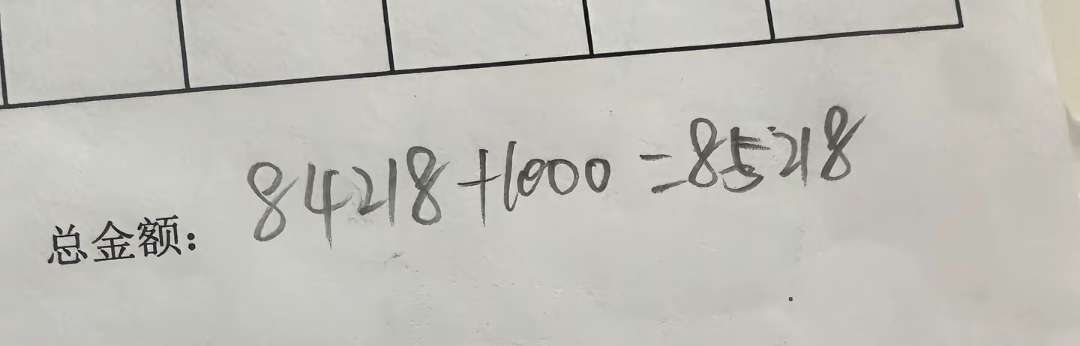 总金额: 84218+1000=85218